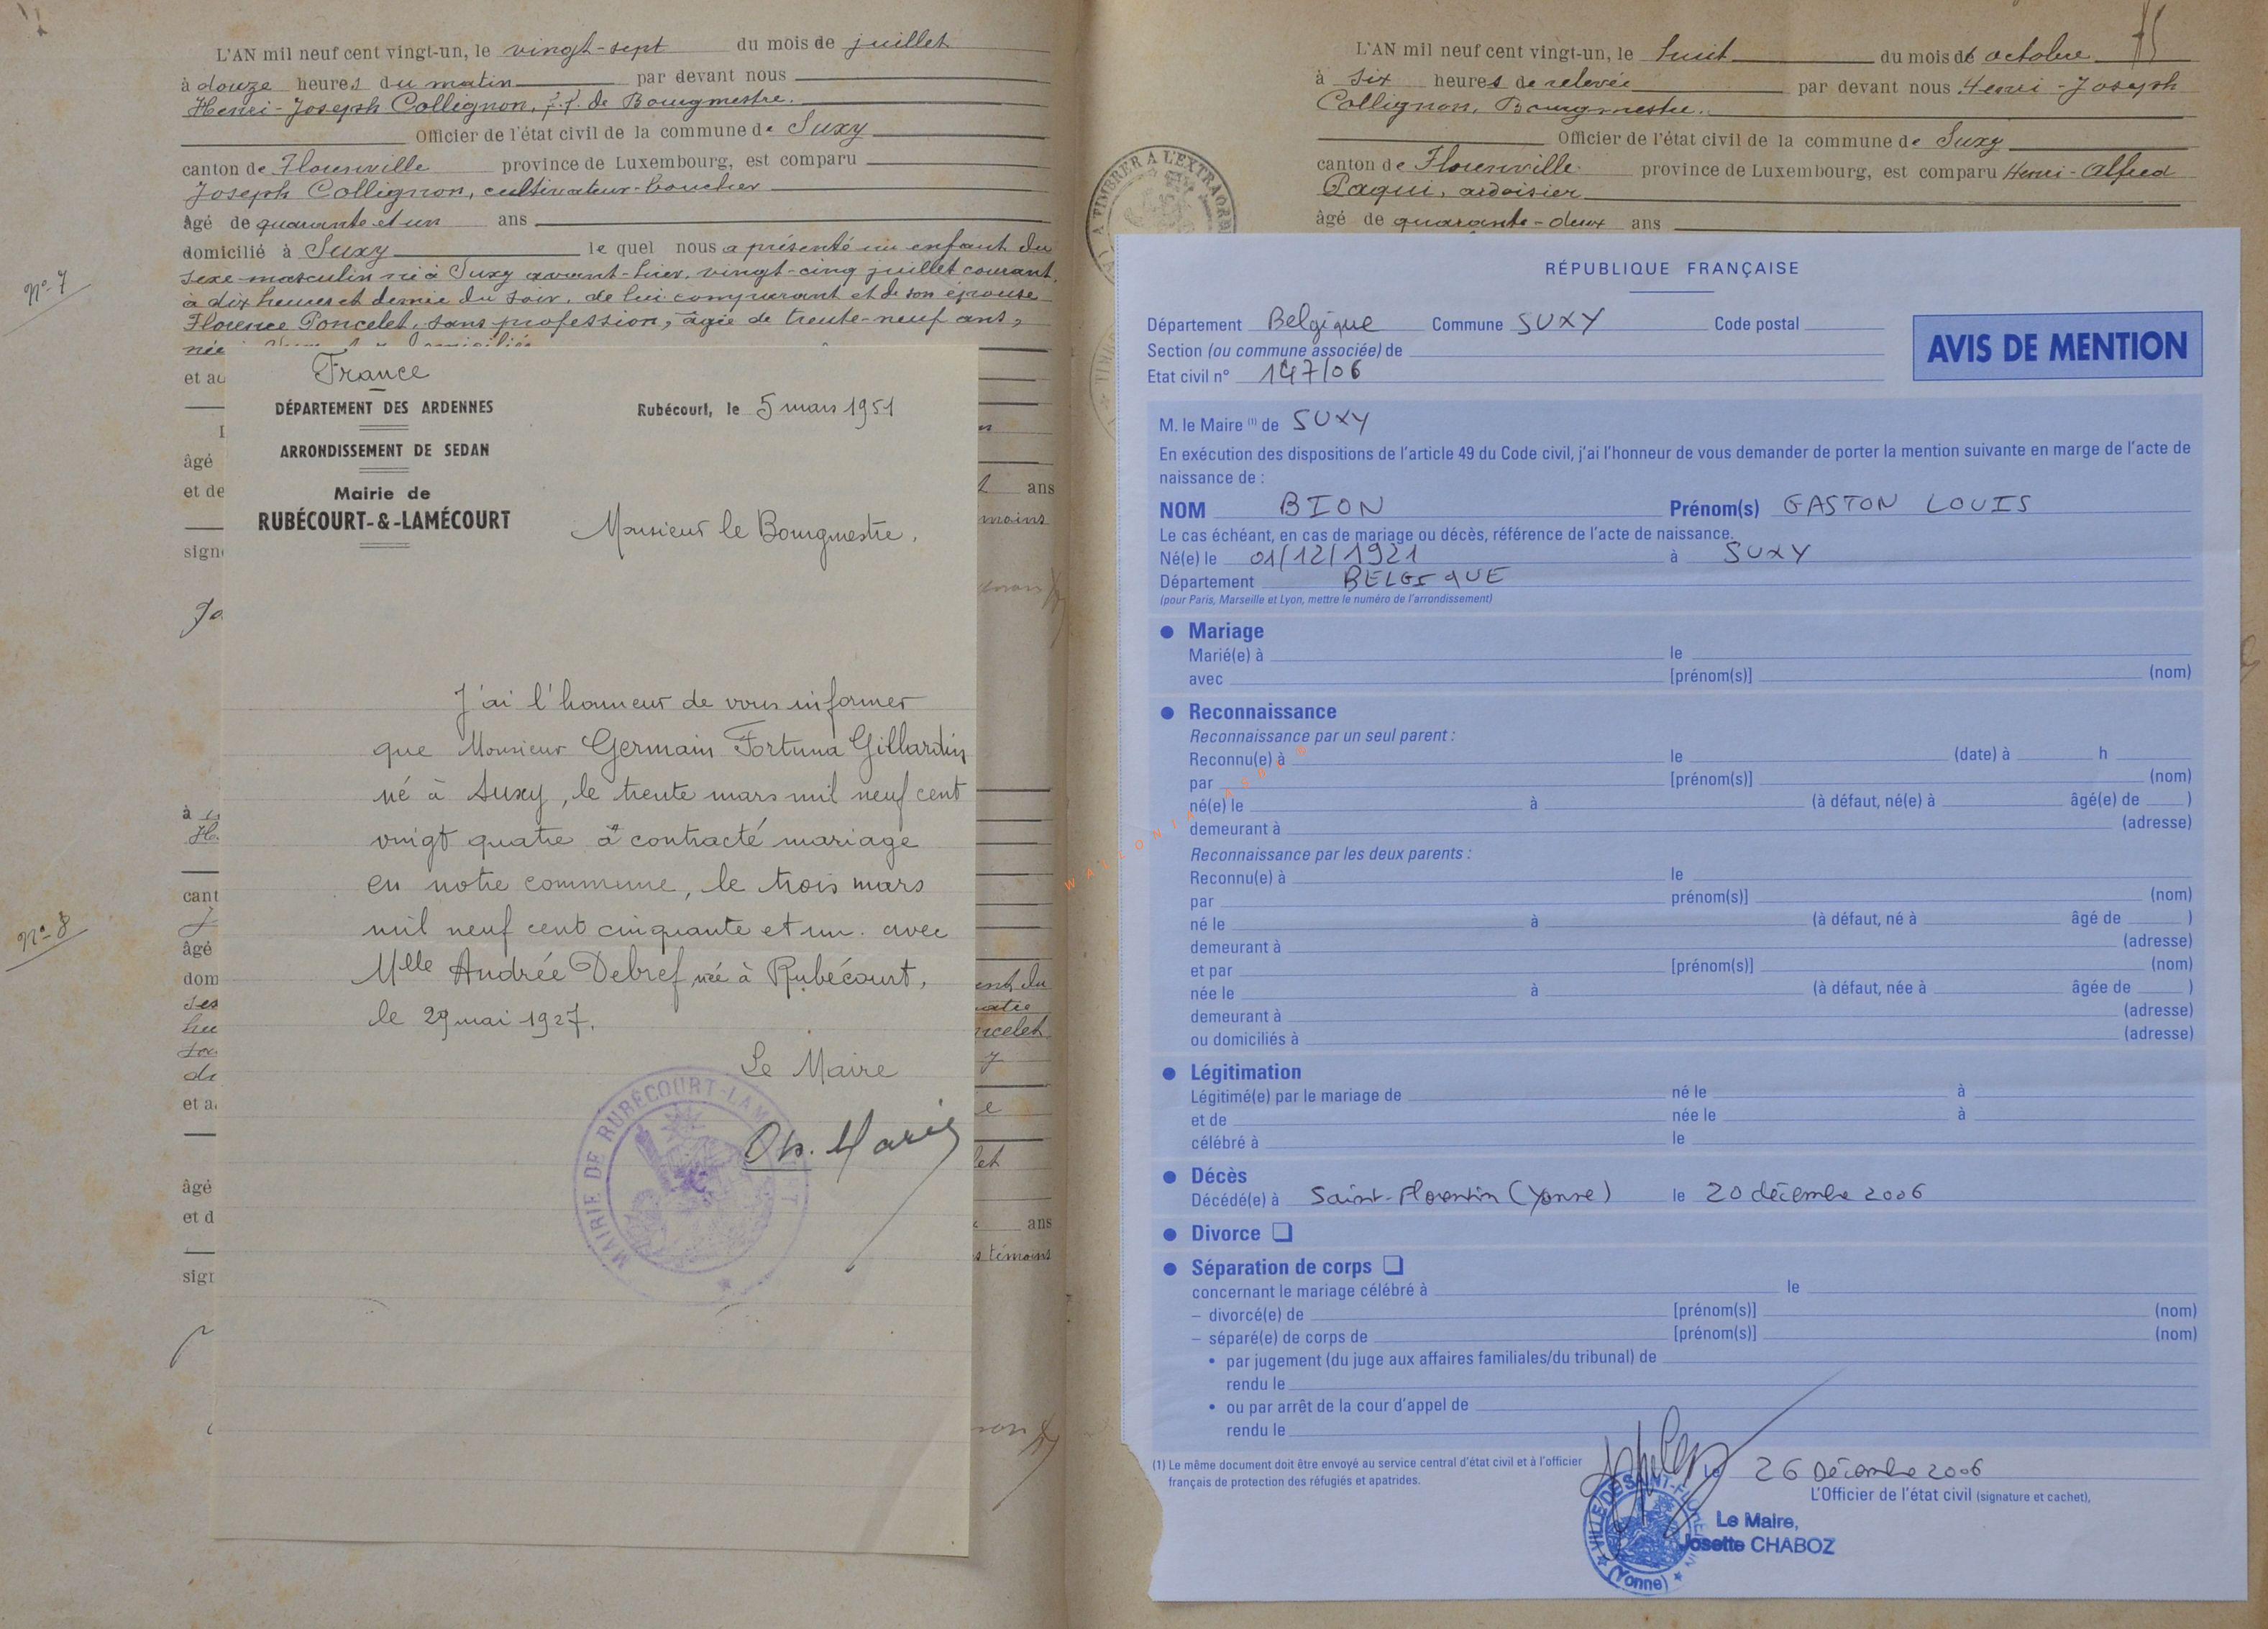 L'AN mil neuf cent vingt-un, le vingt-sept du mois de juillet
à douze heures du matin par devant nous
Henri-Joseph Collignon, f.f. de Bourgmestre.
Officier de l'état civil de la commune de Suxy
canton de Florenville province de Luxembourg, est comparu
Joseph Collignon, cultivateur-boucher
âgé de quarante et un ans
domicilié à Suxy le quel nous a présenté un enfant du
sexe masculin né à Suxy avant-hier, vingt-cinq juillet courant,
à dix heures et demie du soir, de lui comparant et de son épouse
Florence Poncelet, sans profession, âgée de trente-neuf ans,
née
et
âgé
et de
ans
moins
sign
N° 7
France
DÉPARTEMENT DES ARDENNES
ARRONDISSEMENT DE SEDAN
Mairie de
RUBÉCOURT-&-LAMÉCOURT
Rubécourt, le 5 mars 1951
Monsieur le Bourgmestre,
J'ai l'honneur de vous informer
que Monsieur Germain Fortuna Gillardin
né à Suxy, le trente mars mil neuf cent
vingt quatre a contracté mariage
en notre commune, le trois mars
mil neuf cent cinquante et un. avec
Mlle Andrée Debref née à Rubécourt,
le 29 mai 1927.
Le Maire
MAIRIE DE RUBÉCOURT-LAMÉCOURT
N° 8
à
cant
âgé
dom
ent du
ncelet
et a
âgé
et d
ans
s témoins
sign
75
L'AN mil neuf cent vingt-un, le huit du mois de octobre
à six heures de relevée par devant nous Henri-Joseph
Collignon, Bourgmestre.
Officier de l'état civil de la commune de Suxy
canton de Florenville province de Luxembourg, est comparu Henri-Alfred
Paqui, ardoisier
âgé de quarante-deux ans
A TIMBRER A L'EXTRAOR
RÉPUBLIQUE FRANÇAISE
AVIS DE MENTION
Département Belgique Commune SUXY Code postal
Section (ou commune associée) de
Etat civil n° 147/06
M. le Maire (1) de SUXY
En exécution des dispositions de l'article 49 du Code civil, j'ai l'honneur de vous demander de porter la mention suivante en marge de l'acte de
naissance de :
NOM BION Prénom(s) GASTON LOUIS
Le cas échéant, en cas de mariage ou décès, référence de l'acte de naissance.
Né(e) le 01/12/1921 à SUXY
Département BELGIQUE
(pour Paris, Marseille et Lyon, mettre le numéro de l'arrondissement)
● Mariage
Marié(e) à le
avec [prénom(s)] (nom)
● Reconnaissance
Reconnaissance par un seul parent :
Reconnu(e) à le (date) à h
par [prénom(s)] (nom)
né(e) le à (à défaut, né(e) à âgé(e) de )
demeurant à (adresse)
Reconnaissance par les deux parents :
Reconnu(e) à le
par prénom(s)] (nom)
né le à (à défaut, né à âgé de )
demeurant à (adresse)
et par [prénom(s)] (nom)
née le à (à défaut, née à âgée de )
demeurant à (adresse)
ou domiciliés à (adresse)
● Légitimation
Légitimé(e) par le mariage de né le à
et de née le à
célébré à le
● Décès
Décédé(e) à Saint-Florentin (Yonne) le 20 décembre 2006
● Divorce ❏
● Séparation de corps ❏
concernant le mariage célébré à le
– divorcé(e) de [prénom(s)] (nom)
– séparé(e) de corps de [prénom(s)] (nom)
• par jugement (du juge aux affaires familiales/du tribunal) de
rendu le
• ou par arrêt de la cour d'appel de
rendu le
(1) Le même document doit être envoyé au service central d'état civil et à l'officier
français de protection des réfugiés et apatrides.
Le 26 Décembre 2006
L'Officier de l'état civil (signature et cachet),
Le Maire,
Josette CHABOZ
VILLE DE SAINT-FLORENTIN
(Yonne)